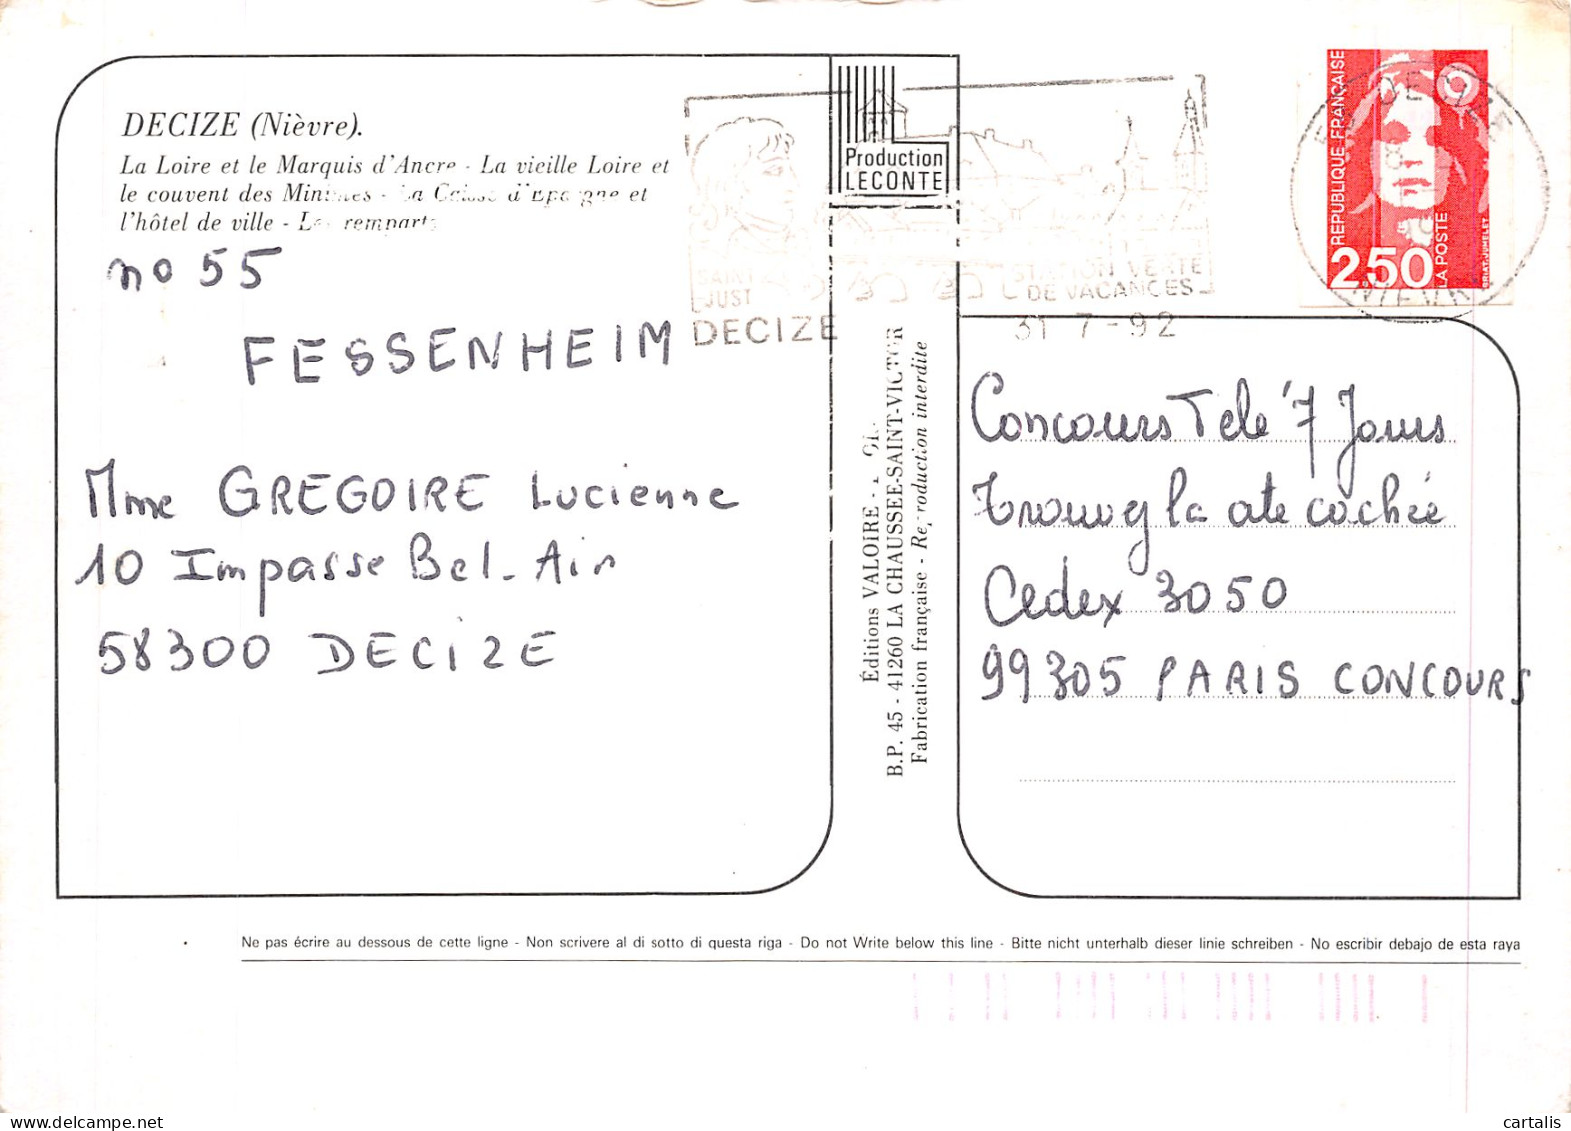 DECIZE (Nièvre).
La Loire et le Marquis d'Ancre - La vieille Loire et
le couvent des Minimes - La Caisse d'Epargne et
l'hôtel de ville - Les remparts
no 55
FESSENHEIM
Mme GREGOIRE Lucienne
10 Impasse Bel-Air
58300 DECIZE
Production
LECONTE
SAINT
JUST
DECIZE
STATION VERTE
DE VACANCES
31 7-92
REPUBLIQUE FRANÇAISE
2,50
LA POSTE
BRIAT-JUMELET
NIEVRE
Éditions VALOIRE -
B.P. 45 - 41260 LA CHAUSSEE-SAINT-VICTOR
Fabrication française - Reproduction interdite
Concours Télé 7 Jours
Trouvez la cité cachée
Cedex 3050
99305 PARIS CONCOURS
Ne pas écrire au dessous de cette ligne - Non scrivere al di sotto di questa riga - Do not Write below this line - Bitte nicht unterhalb dieser linie schreiben - No escribir debajo de esta raya
cartalis